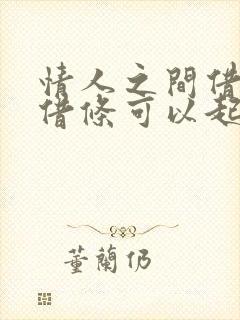 情人之間借
借條可以起
董蘭仍